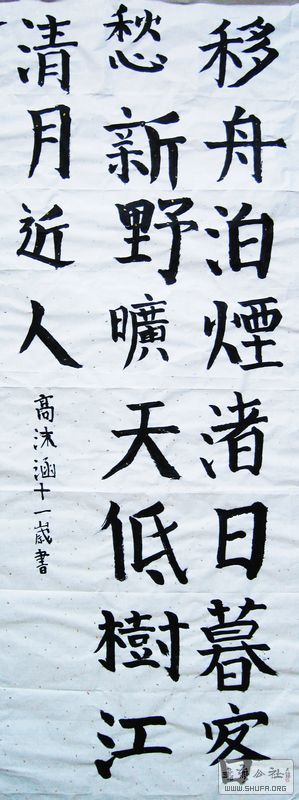 移舟泊煙渚日暮客
愁新野曠天低樹江
清月近人
高沫涵十一歲書
WWW.SHUFA.ORG